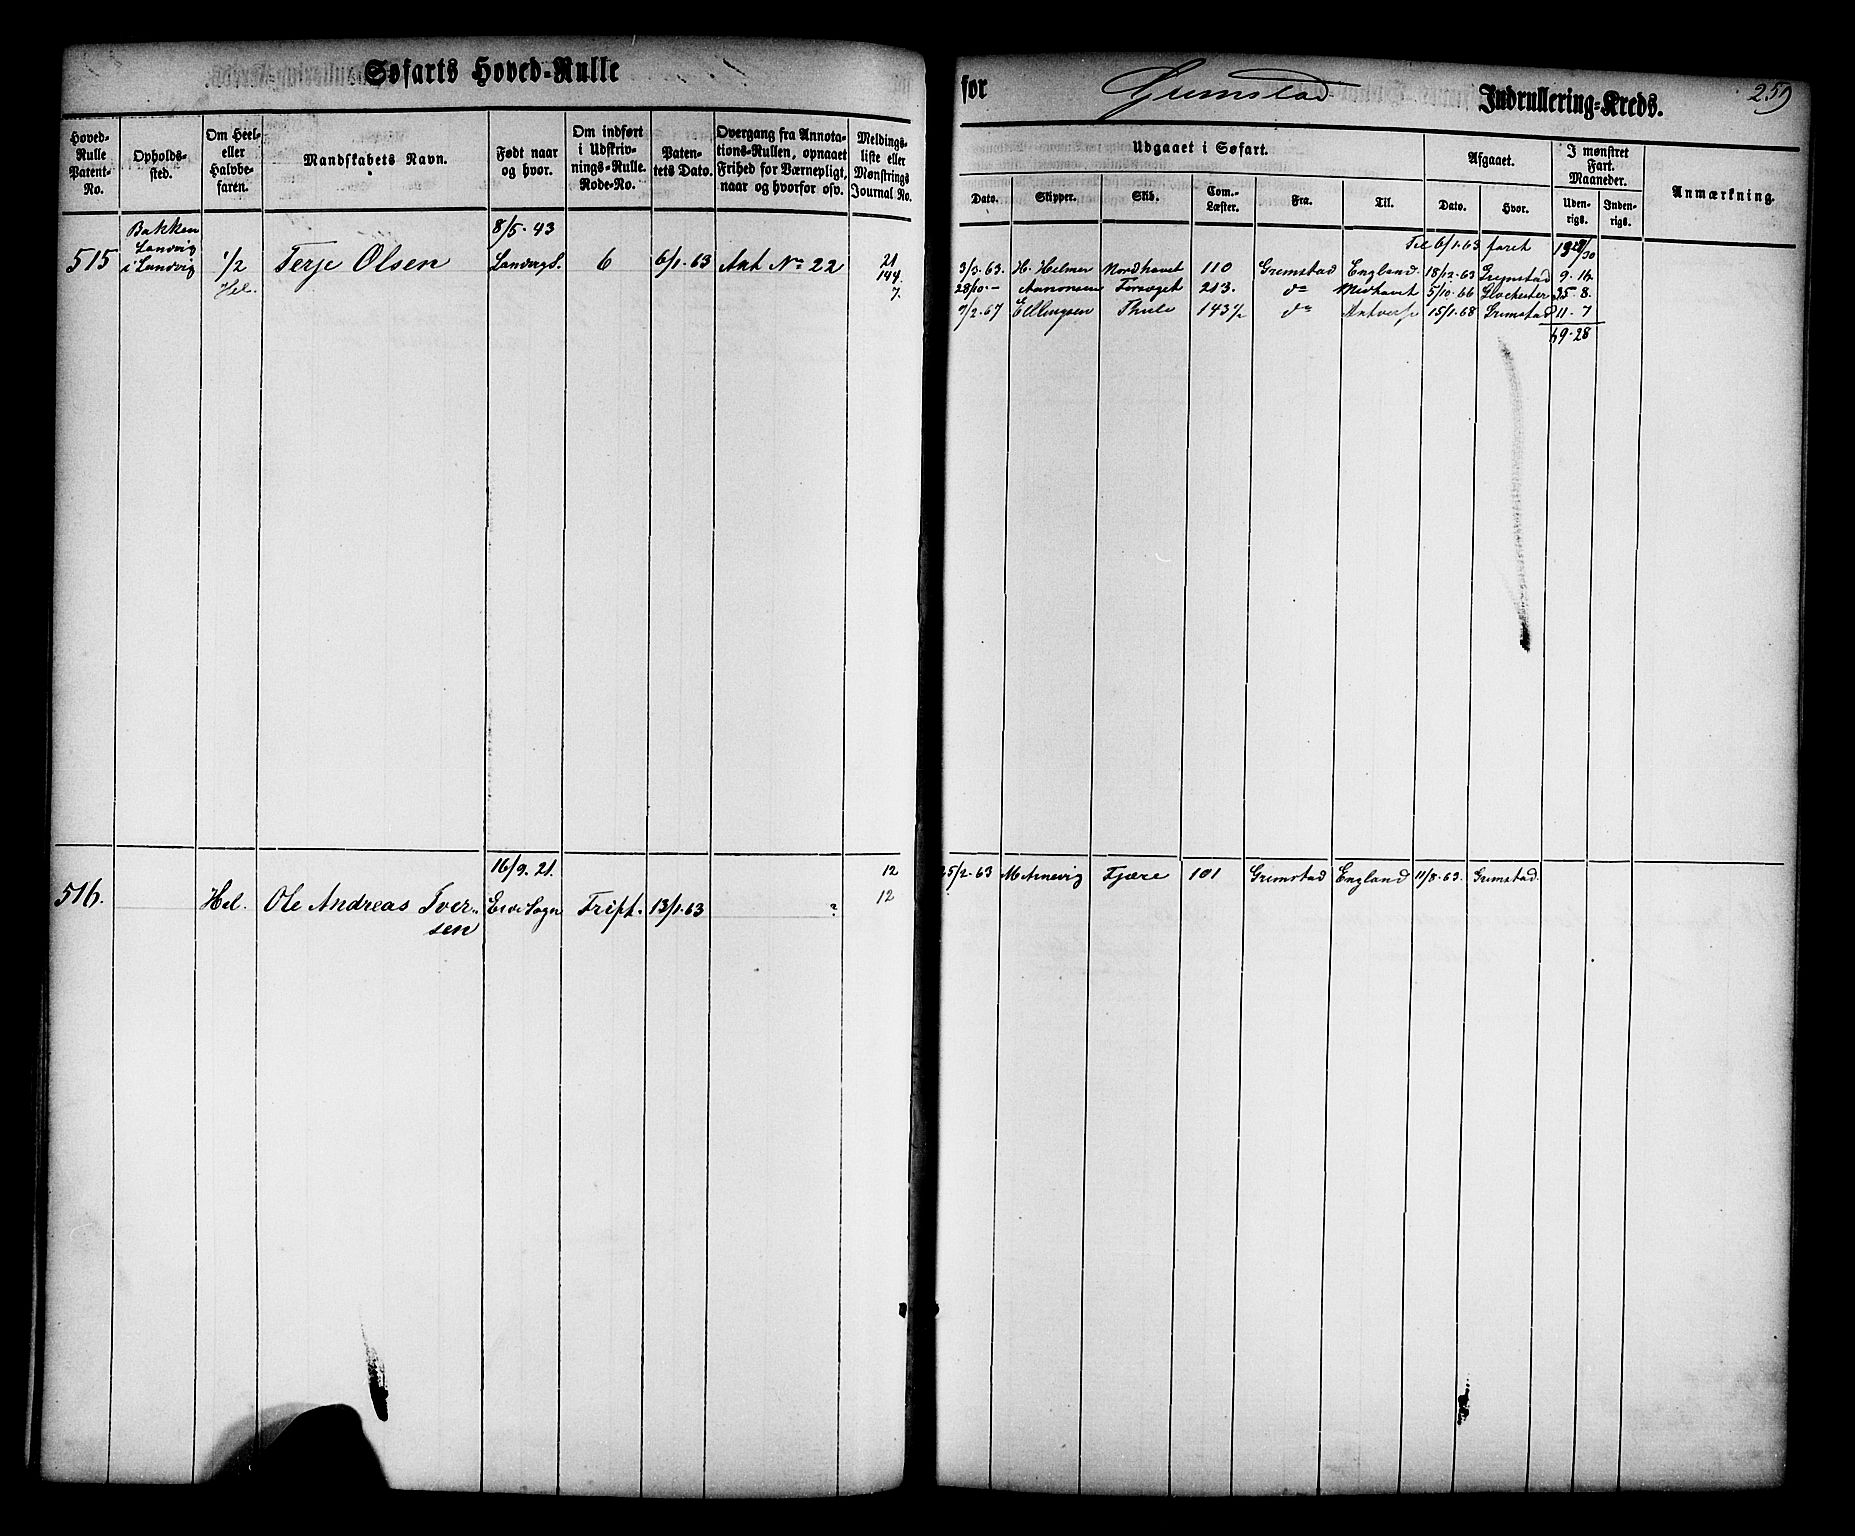 Søfarts Hoved-Rulle
for Grimstad Indrullering-Kreds. 259
Hoved-Rulle Patent-No.
Opholds-sted.
Om Heel- eller Halvbe-faren.
Mandskabets Navn.
Født naar og hvor.
Om indført i Udskriv-nings-Rulle. Rode-No.
Paten-tets Dato.
Overgang fra Annota-tions-Rullen, opnaaet Frihed for Værnepligt, naar og hvorfor osv.
Meldings-liste eller Mønstrings Journal No.
Udgaaet i Søfart.
Afgaaet.
I mønstret Fart. Maaneder.
Anmærkning.
Dato. Skipper. Skib. Com.-Læster. Fra. Til. Dato. Hvor. Uden-rigs. Inden-rigs.
Bakken
Landvig
i Landvig
8/5. 43
Til 6/1.63 faret
515 1/2 Terje Olsen Landvigs. 6 6/1.63 Ant No 22 21
Hel. 144.
7.
3/3.63. H. Helmer Nordhavet 110 Grimstad England. 18/12.63 Grimstad 9.16
28/10.- Aanonsen Forsøget 213. do Midhavet 5/10.66 Glochester 35.8.
7/2.67 Ellingsen Thule 143 1/2 do Antverp 15/1.68 Grimstad 11.7
69.28
16/9.21. 12
516. Hel. Ole Andreas Iver- Eide Sogn Fript. 13/1.63 ? 12
sen
25/2.63 M Arnevig Fjære 101 Grimstad England 11/8.63. Grimstad.